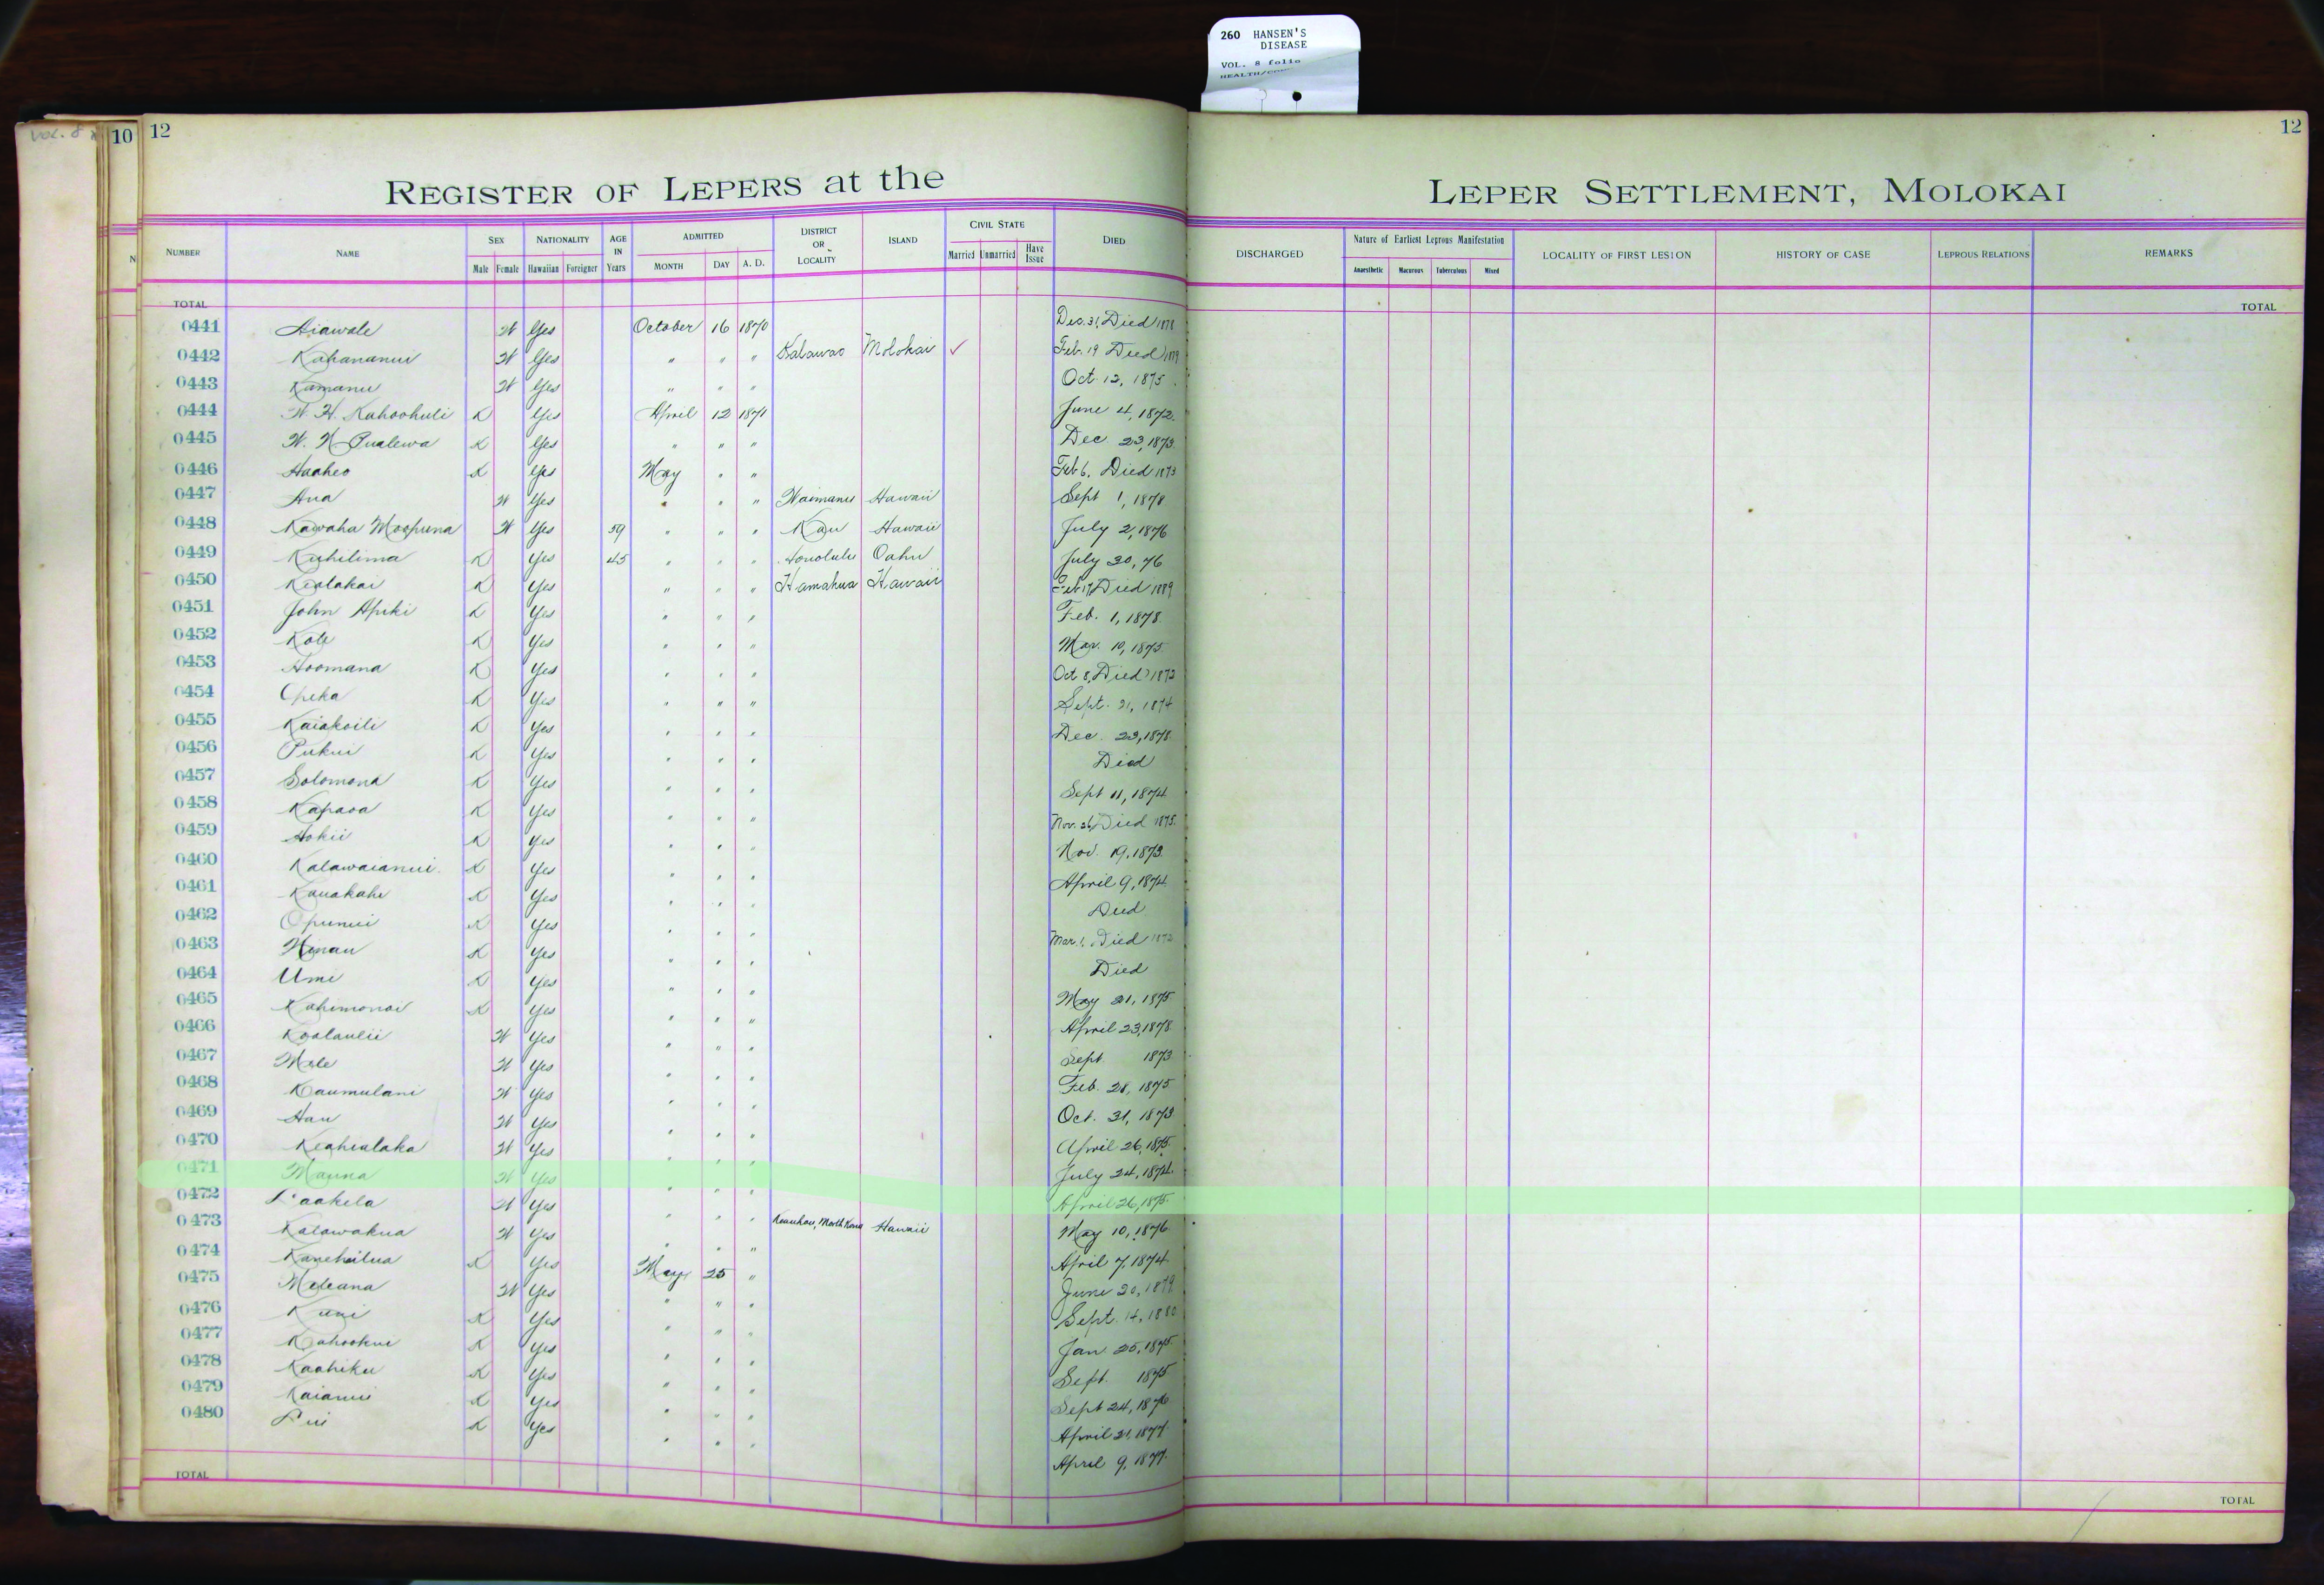 260 HANSEN'S
DISEASE
VOL. 8 folio
VOL. 8
10 12
12
REGISTER OF LEPERS at the LEPER SETTLEMENT, MOLOKAI
NUMBER NAME SEX NATIONALITY AGE IN Years ADMITTED DISTRICT OR LOCALITY ISLAND CIVIL STATE DIED DISCHARGED Nature of Earliest Leprous Manifestation LOCALITY OF FIRST LESION HISTORY OF CASE LEPROUS RELATIONS REMARKS
Male Female Hawaiian Foreigner MONTH DAY A. D. Married Unmarried Have Issue Anaesthetic Macurous Tuberculous Mixed
TOTAL TOTAL
0441 Aiawale W Yes October 16 1870 Dec. 31, Died 1878
0442 Kahananui W Yes " " " Kalawao Molokai ✓ Feb. 19 Died
0443 Kamanu W Yes " " " Oct. 12, 1875
0444 W. H. Kahoohuli K Yes April 12 1871 June 4, 1872
0445 W. N. Pualewa K Yes " " " Dec. 23, 1873
0446 Haaheo K Yes May " " Feb 6, Died 1873
0447 Ana W Yes " " " Waimanu Hawaii Sept 1, 1878
0448 Kawaha Moopuna W Yes 59 " " " Kau Hawaii July 2, 1876
0449 Kuhilima K Yes 45 " " " Honolulu Oahu July 30, 76
0450 Kealakai K Yes " " " Hamakua Hawaii Feb 17, Died 1889
0451 John Apiki K Yes " " " Feb. 1, 1878
0452 Kole K Yes " " " Mar. 10, 1875
0453 Hoomana K Yes " " " Oct 8, Died 1872
0454 Opeka K Yes " " " Sept. 21, 1874
0455 Kaiakoili K Yes " " " Dec. 23, 1878
0456 Pukui K Yes " " " Died
0457 Solomona K Yes " " " Sept 11, 1874
0458 Kapaoa K Yes " " " Nov. 26, Died 1875
0459 Hokii K Yes " " " Nov. 19, 1873
0460 Kalawaianui K Yes " " " April 9, 1874
0461 Kauakahi K Yes " " " Died
0462 Opunui K Yes " " " Mar. 1, Died 1872
0463 Hinau K Yes " " " Died
0464 Umi K Yes " " " May 21, 1875
0465 Kahimonai K Yes " " " April 23, 1878
0466 Koolaulii W Yes " " " Sept 1873
0467 Mele W Yes " " " Feb. 28, 1875
0468 Kaumulani W Yes " " " Oct. 31, 1873
0469 Hau W Yes " " " April 26, 1875
0470 Keahialaka W Yes " " " July 24, 1874
0471 Mauna W Yes " " " April 26, 1875
0472 Laakela W Yes " " " Keauhou, North Kona Hawaii May 10, 1876
0473 Kalawakua W Yes " " " April 7, 1874
0474 Kanehailua K Yes May 25 " June 20, 1879
0475 Meleana W Yes " " " Sept. 14, 1880
0476 Kuni K Yes " " " Jan. 25, 1875
0477 Kahookui K Yes " " " Sept. 1875
0478 Kaahiku K Yes " " " Sept 24, 1876
0479 Kaianui K Yes " " " April 21, 1877
0480 Lui K Yes " " " April 9, 1877
TOTAL TOTAL